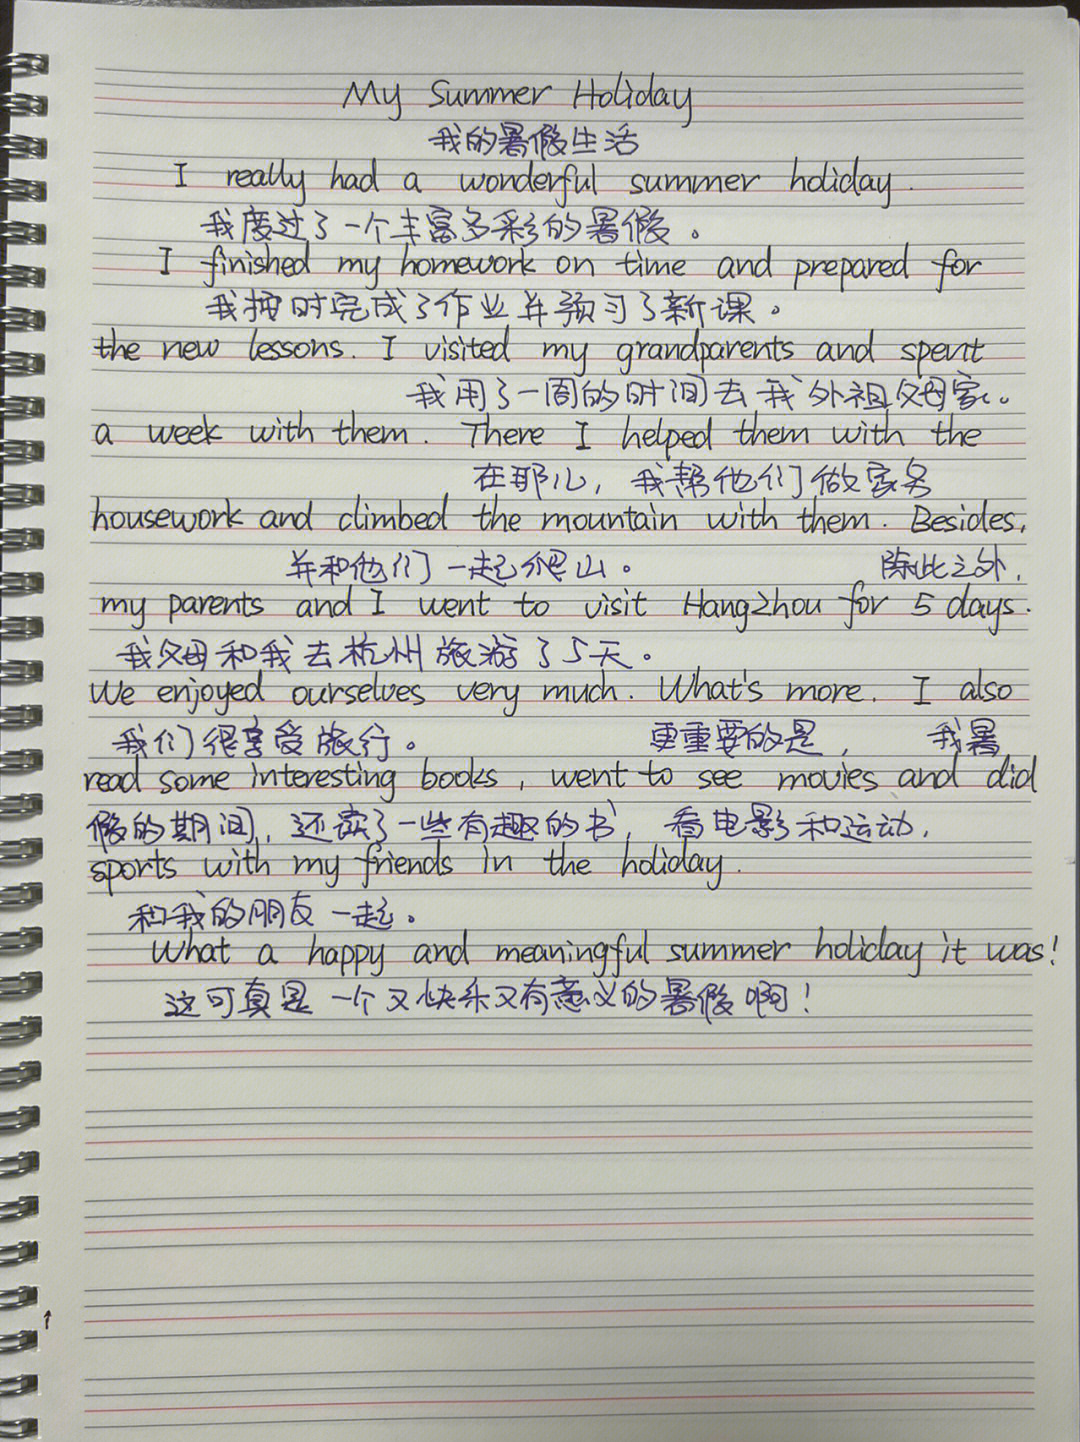 My Summer Holiday
我的暑假生活
I really had a wonderful summer holiday.
我度过了一个丰富多彩的暑假。
I finished my homework on time and prepared for
我按时完成了作业并预习了新课。
the new lessons. I visited my grandparents and spent
我用了一周的时间去我外祖父母家。
a week with them. There I helped them with the
在那儿，我帮他们做家务
housework and climbed the mountain with them. Besides,
并和他们一起爬山。 除此之外，
my parents and I went to visit Hangzhou for 5 days.
我父母和我去杭州旅游了5天。
We enjoyed ourselves very much. What's more. I also
我们很享受旅行。 更重要的是， 我暑
read some interesting books, went to see movies and did
假的期间，还读了一些有趣的书，看电影和运动，
sports with my friends in the holiday.
和我的朋友一起。
What a happy and meaningful summer holiday it was!
这可真是一个又快乐又有意义的暑假啊！